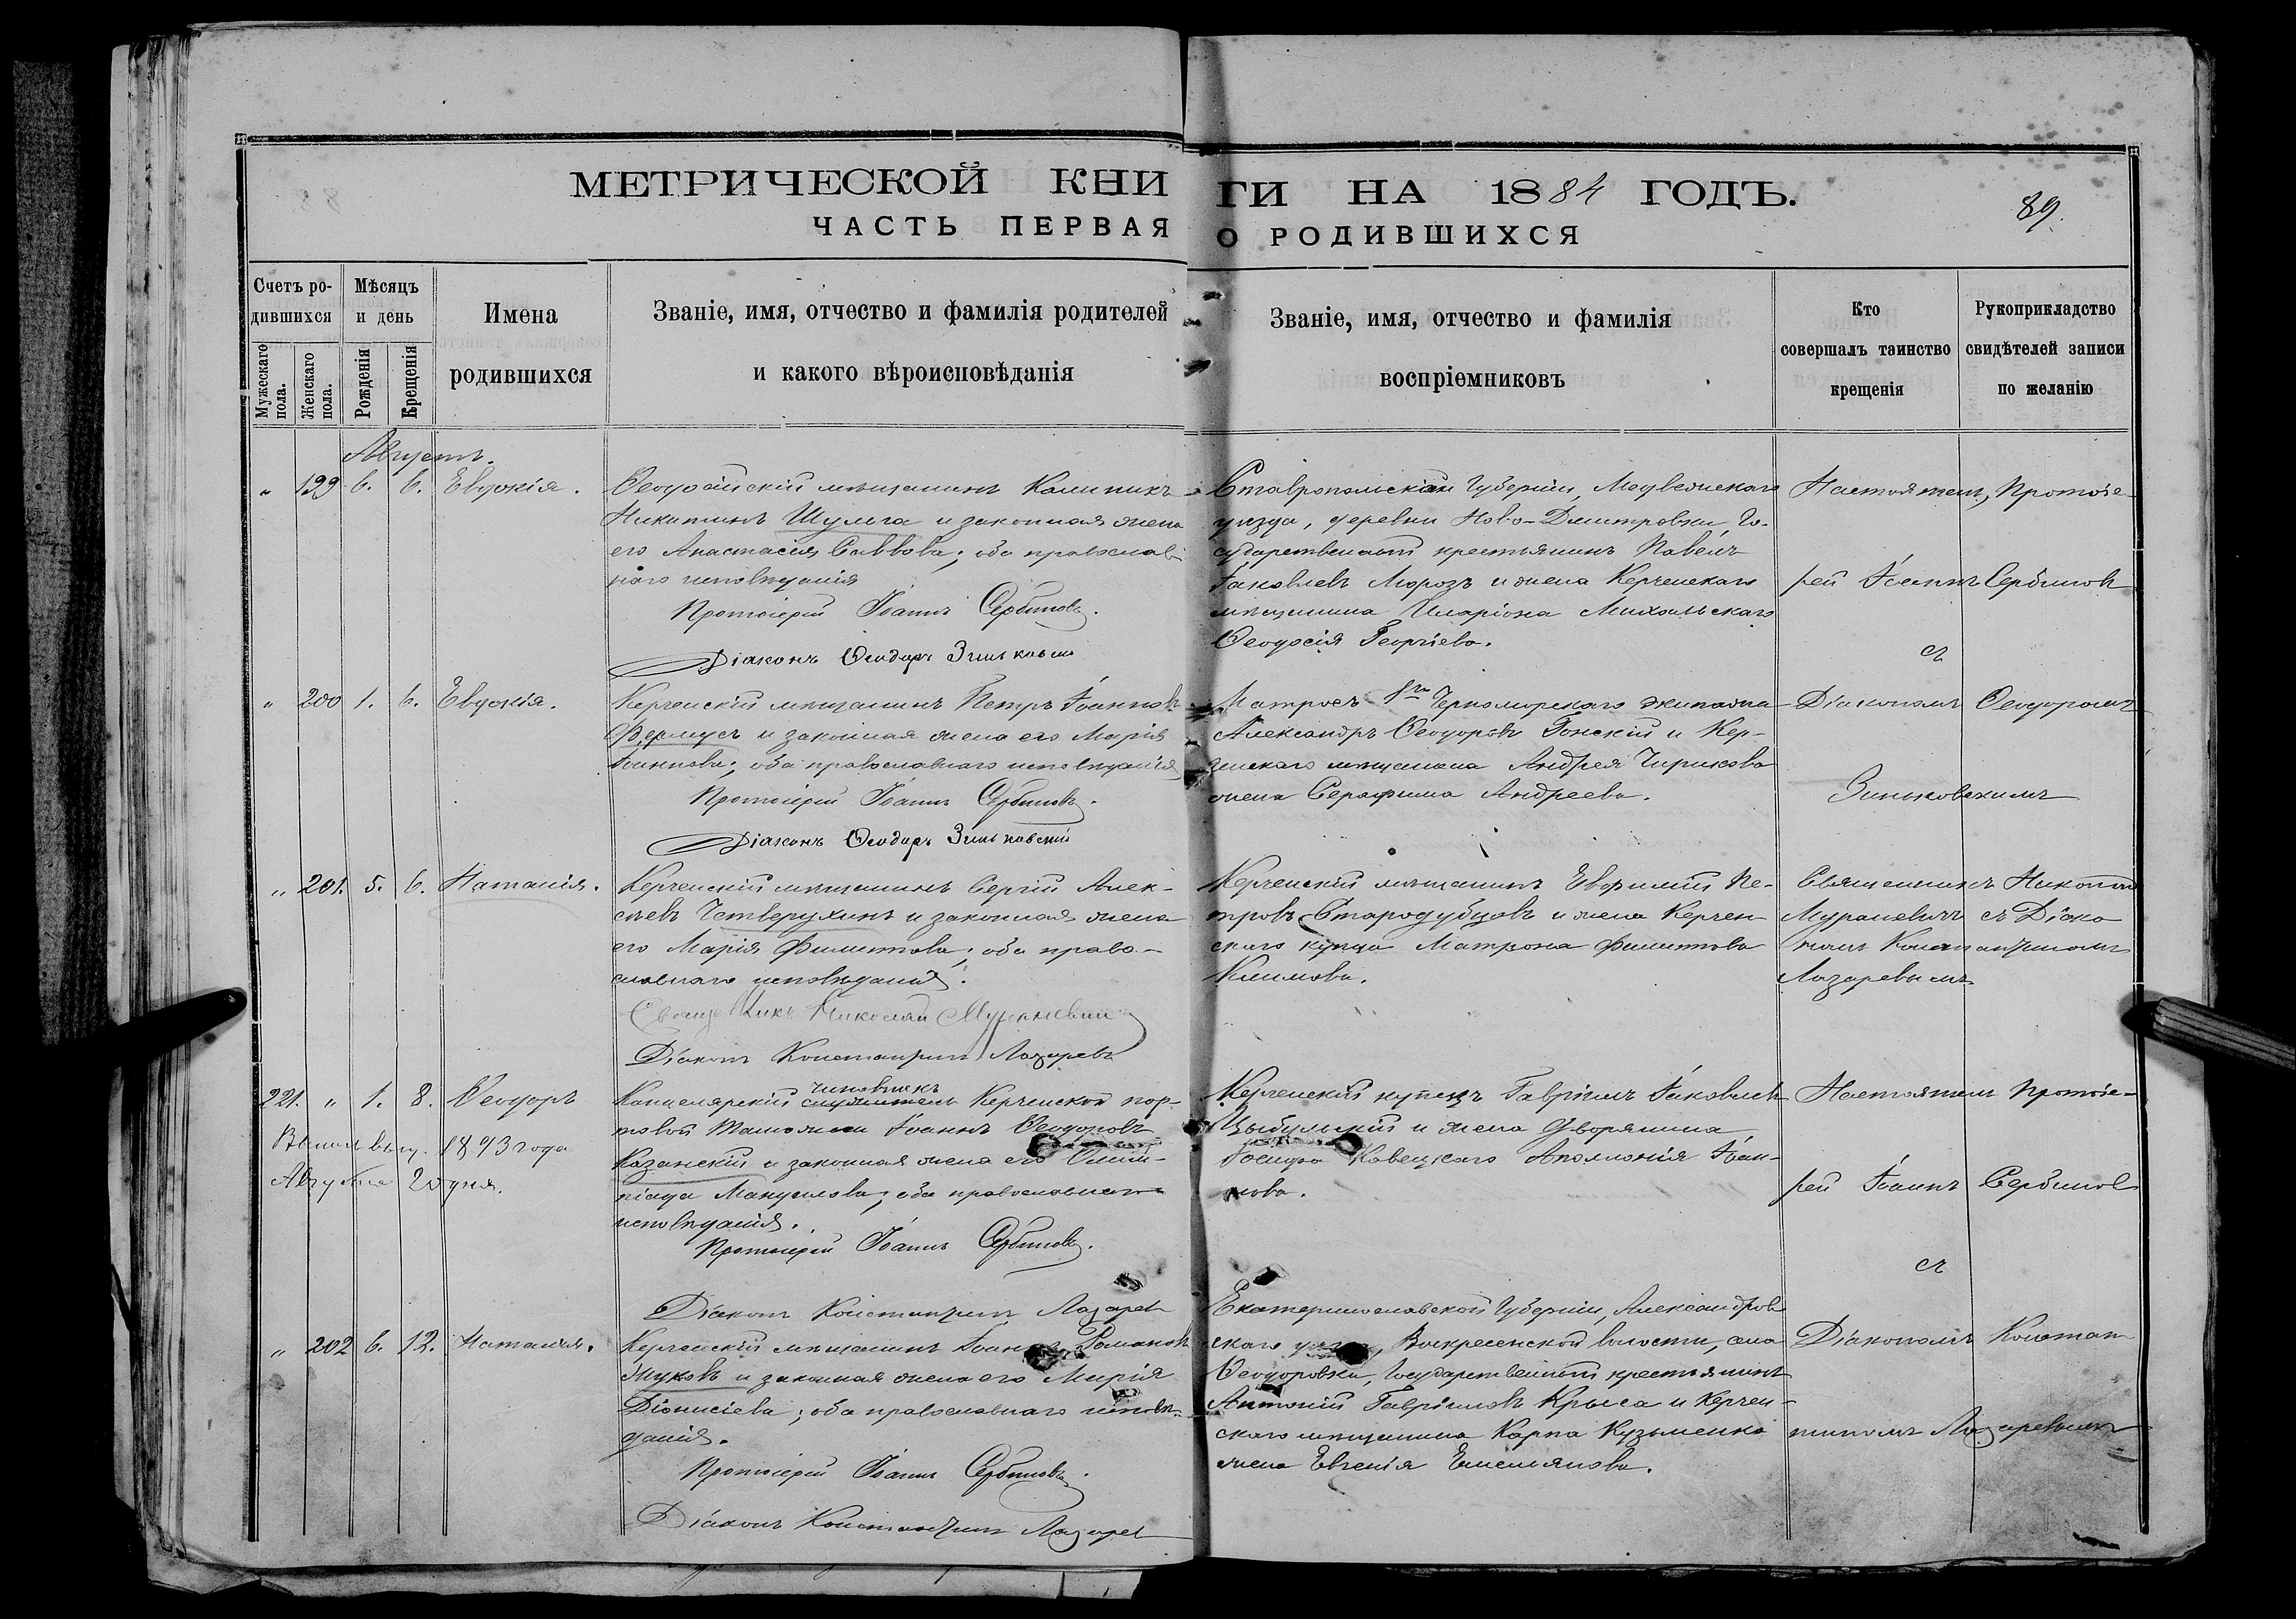 МЕТРИЧЕСКОЙ КНИГИ НА 1884 ГОДЪ.
89.
ЧАСТЬ ПЕРВАЯ О РОДИВШИХСЯ
Счетъ ро-
дившихся
Мужескаго пола.
Женскаго пола.
Мѣсяцъ
и день
Рожденія
Крещенія
Имена
родившихся
Званіе, имя, отчество и фамилія родителей
и какого вѣроисповѣданія
Званіе, имя, отчество и фамилія
воспріемниковъ
Кто
совершалъ таинство
крещенія
Рукоприкладство
свидѣтелей записи
по желанію
Августъ.
" 199 6. 6. Евдокія.
Ѳеодосійскій мѣщанинъ Калиникъ
Никитинъ Шульга и законная жена
его Анастасія Саввова; оба православ-
наго исповѣданія
Протоіерей Іоаннъ Сербиновъ.
Діаконъ Ѳеодоръ Зиньковскій
Ставропольской Губерніи, Медвеженскаго
уѣзда, деревни Ново-Дмитровки, Го-
сударственный крестьянинъ Павелъ
Іаковлевъ Морозъ и жена Керченскаго
мѣщанина Иларіона Михальскаго
Ѳеодосія Георгіева.
Настоятель, Протоіе-
рей Іоаннъ Сербиновъ
съ
" 200 1. 6. Евдокія.
Керченскій мѣщанинъ Петръ Іоанновъ
Фермусъ и законная жена его Марія
Іоаннова; оба православнаго исповѣданія
Протоіерей Іоаннъ Сербиновъ.
Діаконъ Ѳеодоръ Зиньковскій
Матросъ Черноморскаго экипажа
Александръ Ѳеодоровъ Гонскій и Кер-
ченскаго мѣщанина Андрея Чирикова
жена Серафима Андреева.
Діакономъ Ѳеодоромъ
Зиньковскимъ
" 201. 5. 6. Наталія.
Керченскій мѣщанинъ Сергій Алек-
сѣевъ Четверухинъ и законная жена
его Марія Филиппова; оба право-
славнаго исповѣданія.
Священникъ Николай Мураневичъ
Діаконъ Константинъ Лазаревъ
Керченскій мѣщанинъ Евфимій Пе-
тровъ Стародубцовъ и жена Керчен-
скаго купца Матрона Филиппова
Климова.
Священникъ Николай
Мураневичъ съ Діако-
номъ Константиномъ
Лазаревымъ
221. " 1. 8. Ѳеодоръ
1893 года
Августа 20 дня.
чиновникъ
Канцелярскій служитель Керченской пор-
товой Таможни Іоаннъ Ѳеодоровъ
Казанскій и законная жена его Олим-
піада Мануилова; оба православнаго
исповѣданія.
Протоіерей Іоаннъ Сербиновъ.
Діаконъ Константинъ Лазаревъ
Керченскій купецъ Гавріилъ Іаковлевъ
Цыбульскій и жена Дворянина
Іосифа Кавецкаго Аполлонія Іоан-
нова.
Настоятель Протоіе-
рей Іоаннъ Сербиновъ
съ
" 202 6. 12. Наталія.
Керченскій мѣщанинъ Іоаннъ Романовъ
Жуковъ и законная жена его Марія
Діонисіева; оба православнаго исповѣ-
данія.
Протоіерей Іоаннъ Сербиновъ.
Діаконъ Константинъ Лазаревъ
Екатеринославской Губерніи, Александров-
скаго уѣзда, Воскресенской волости, села
Ѳеодоровки, Государственный крестьянинъ
Антоній Гавріиловъ Крыса и Керчен-
скаго мѣщанина Карпа Кузьменко
жена Евгенія Емельянова.
Діакономъ Констан-
тиномъ Лазаревымъ